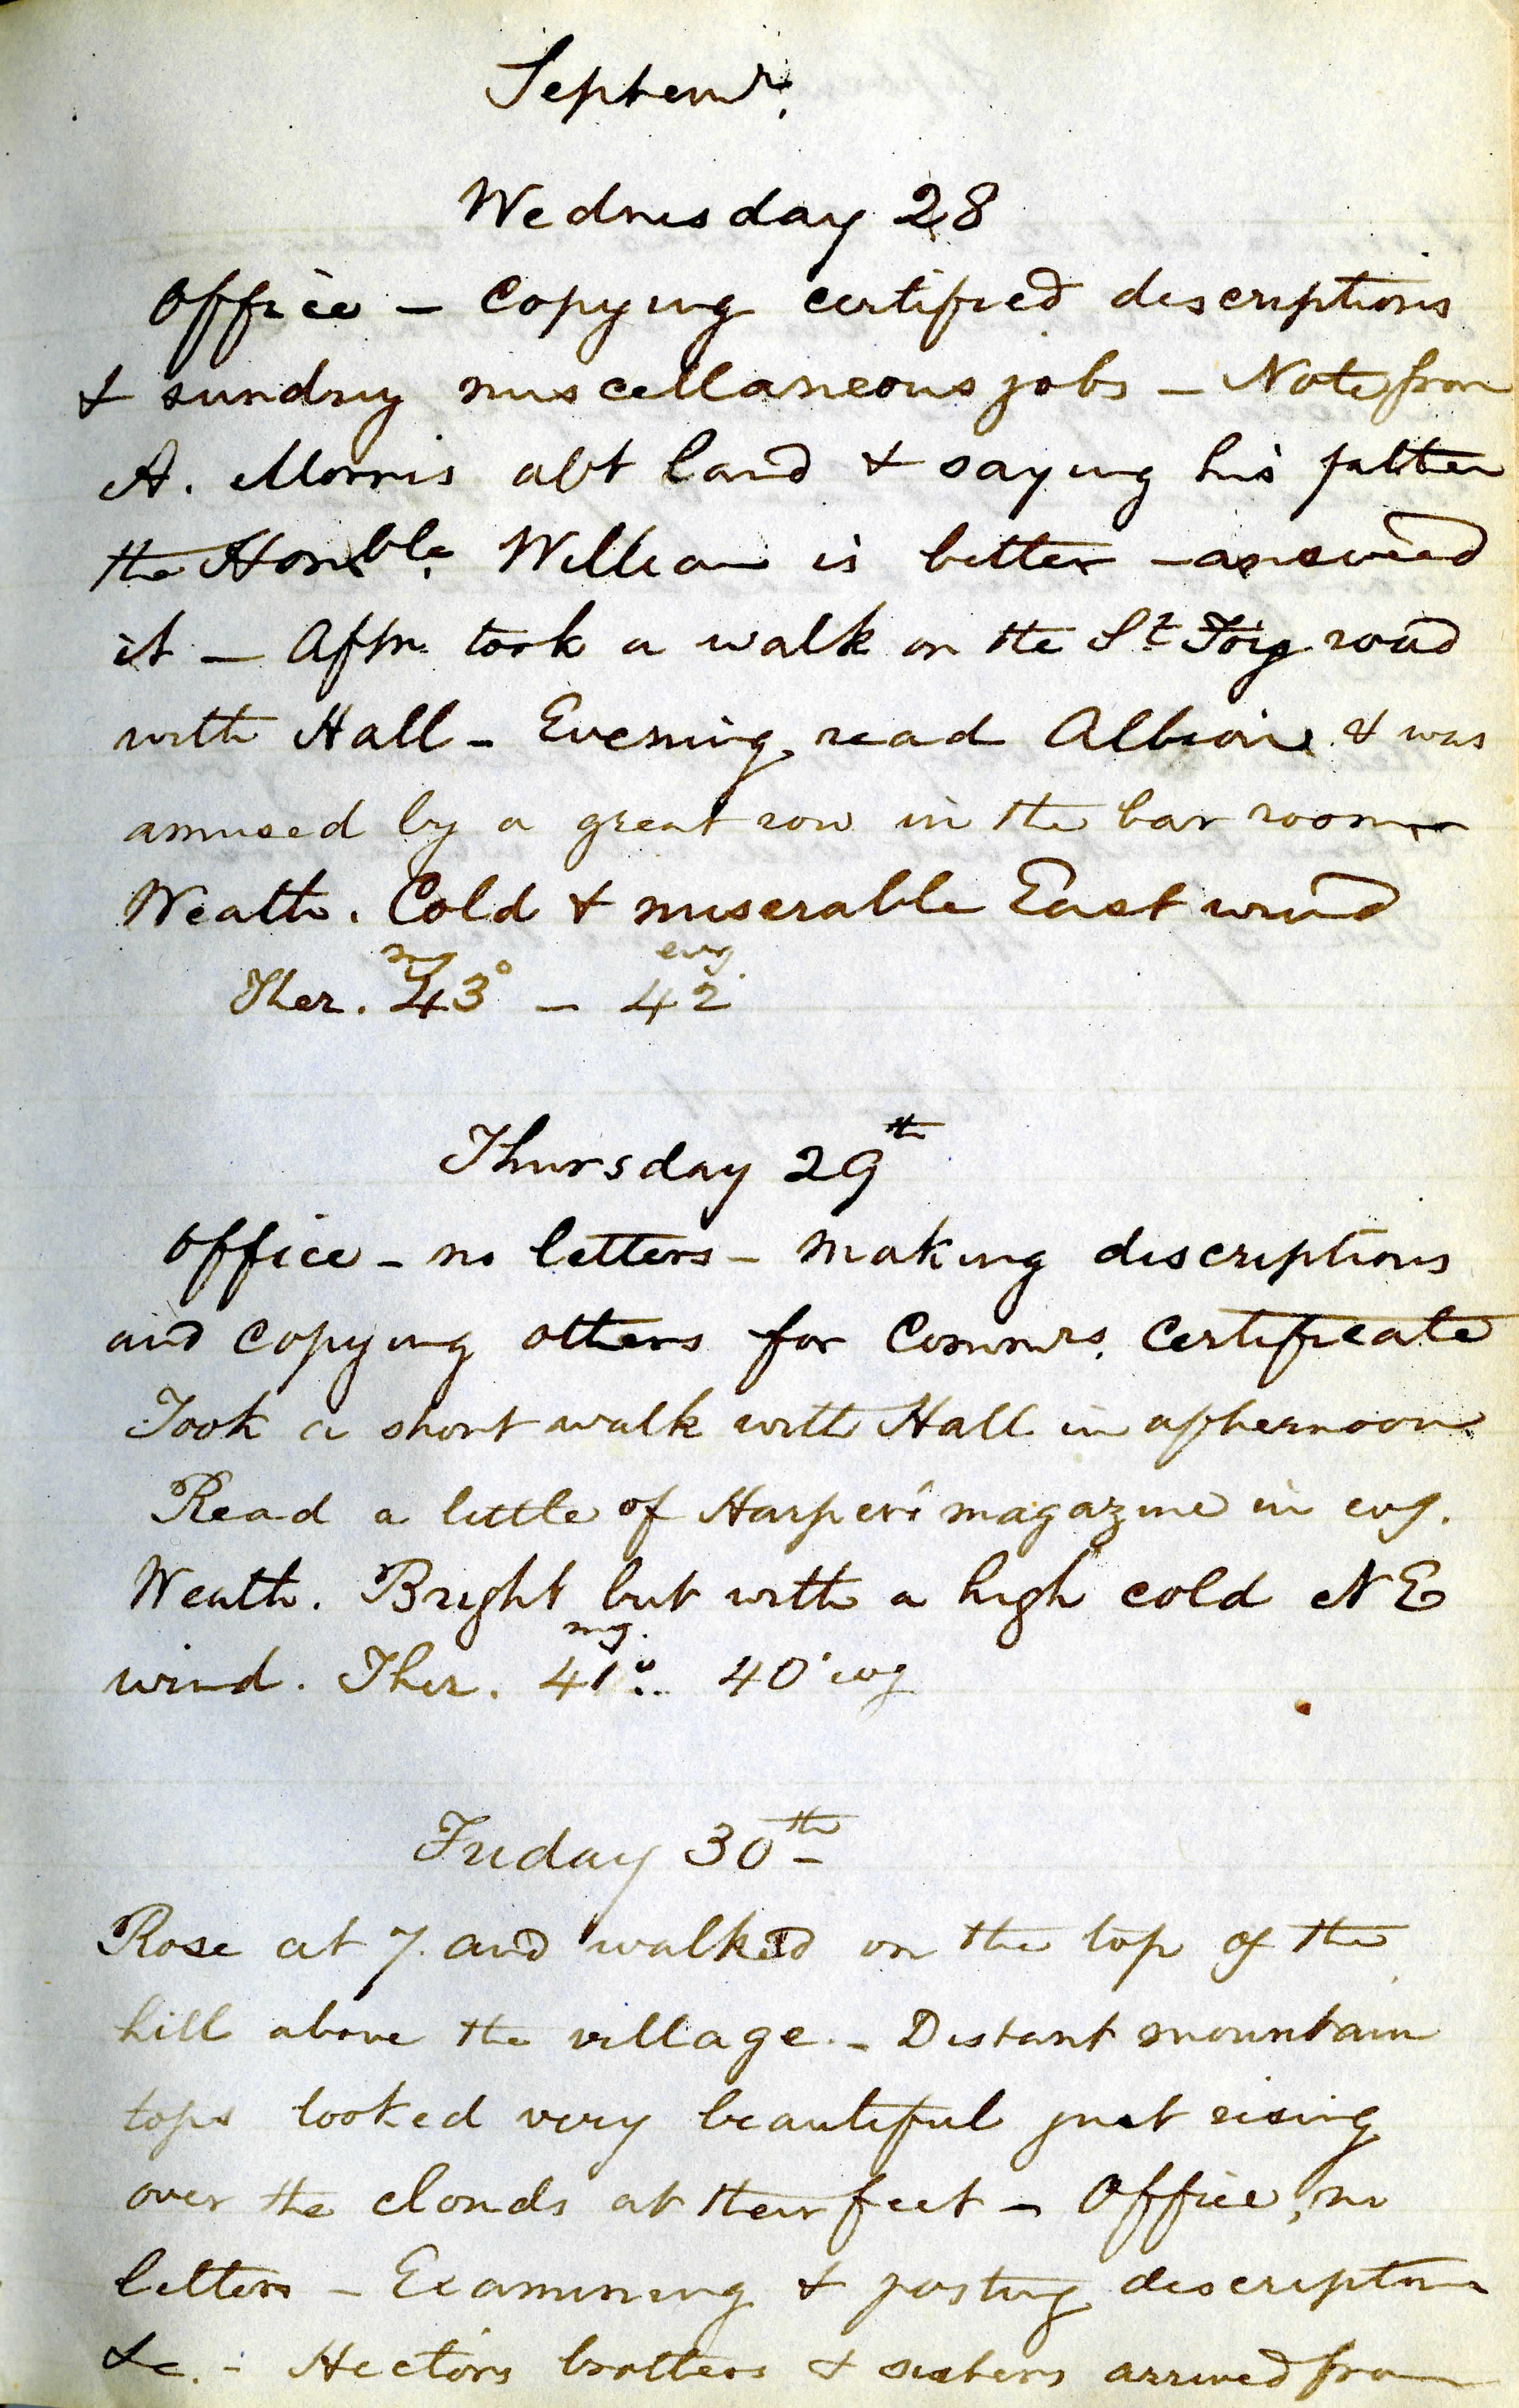 Septemr.
Wednesday 28
Office – Copying certified descriptions
& sundry miscellaneous jobs – Note from
A. Morris abt land & saying his father
the Honble. William is better – answered
it – Aftn. took a walk on the St Foy road
with Hall – Evening, read Albion & was
amused by a great row in the bar room
Weath. Cold & miserable East wind
mg evg
Ther. 43° – 42
Thursday 29th
Office – no letters – Making descriptions
and copying others for Commrs. Certificate
Took a short walk with Hall in afternoon
Read a little of Harper's magazine in evg.
Weath. Bright but with a high cold NE
mg.
wind. Ther. 41°.. 40° evg
Friday 30th
Rose at 7. and walked on the top of the
hill above the village. – Distant mountain
tops looked very beautiful just rising
over the clouds at their feet – Office, no
letters – Examining & posting description
&c. – Hectors brothers & sisters arrived from